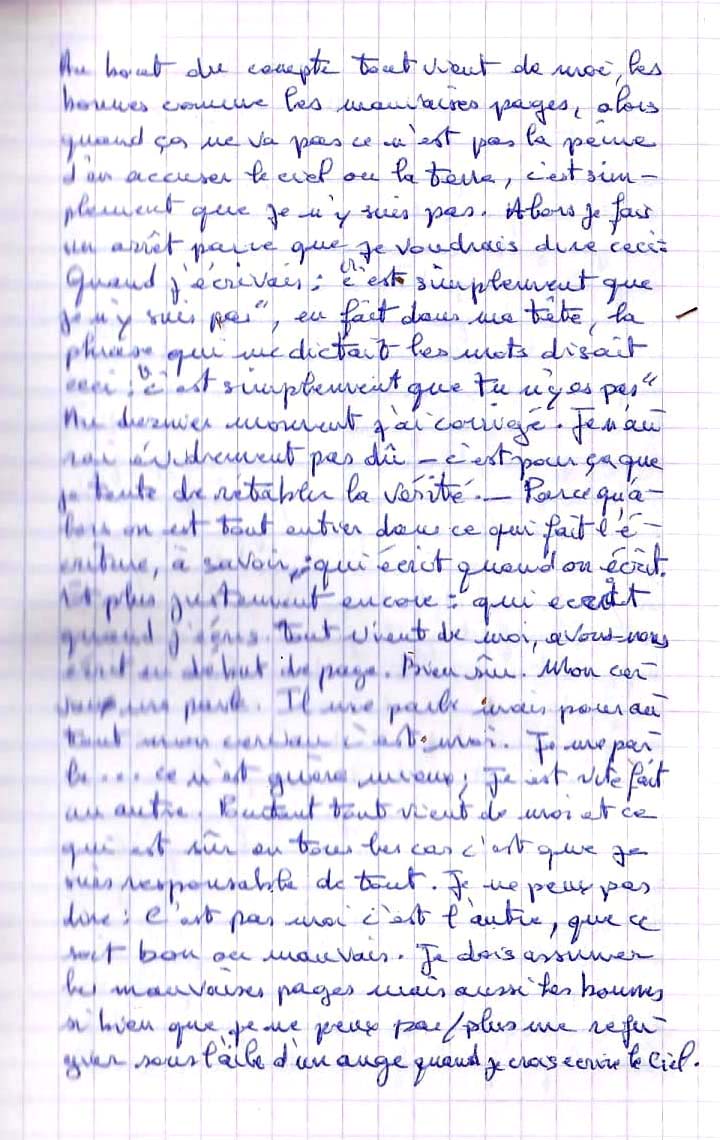 Au bout du compte tout vient de moi, les
bonnes comme les mauvaises pages, alors
quand ça ne va pas ce n'est pas la peine
d'en accuser le ciel ou la terre, c'est sim-
plement que je n'y suis pas. Alors je fais
un arrêt parce que je voudrais dire ceci:
Quand j'écrivais: "c'est simplement que
je n'y suis pas", en fait dans ma tête, la
phrase qui me dictait les mots disait
ceci: "c'est simplement que tu n'y es pas"
Au dernier moment j'ai corrigé. Je n'au
rai évidemment pas dû - c'est pour ça que
je tente de rétablir la vérité. - Parce qu'a-
lors on est tout entier dans ce qui fait l'é-
criture, à savoir: qui écrit quand on écrit.
Et plus justement encore: qui écrit
quand j'écris. Tout vient de moi, avous-nous
écrit en début de page. Bien sûr. Mon cer-
veau me parle. Il me parle mais pour au
tant mon cerveau c'est moi. Je me par
le... ce n'est guère mieux; Je est vite fait
un autre. Pourtant tout vient de moi et ce
qui est sûr en tous les cas c'est que je
suis responsable de tout. Je ne peux pas
dire: C'est pas moi c'est l'autre, que ce
soit bon ou mauvais. Je dois assumer
les mauvaises pages mais aussi les bonnes
si bien que je ne peux pas/plus me réfu-
gier sous l'aile d'un ange quand je crois écrire le Ciel.